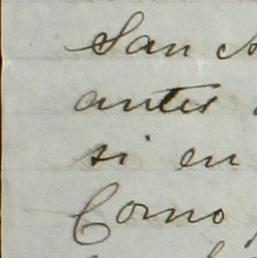 San
antes
si en
Como